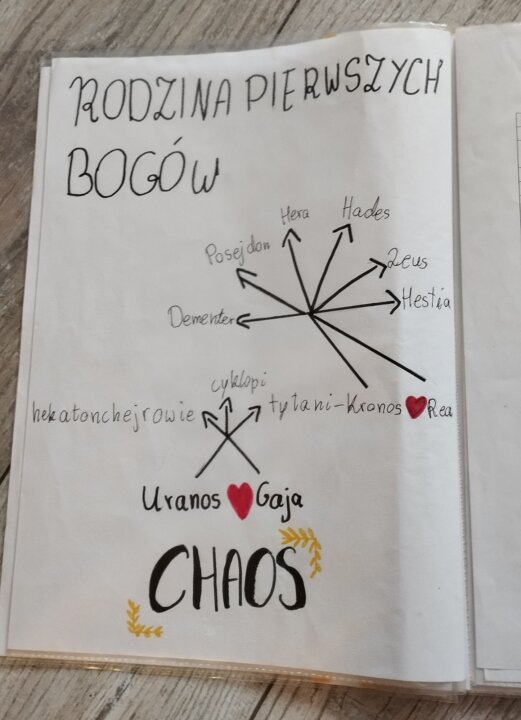 RODZINA PIERWSZYCH
BOGÓW
Hera
Hades
Posejdon
Zeus
Hestia
Dementer
cyklopi
hekatonchejrowie
tytani-Kronos
Rea
Uranos
Gaja
CHAOS